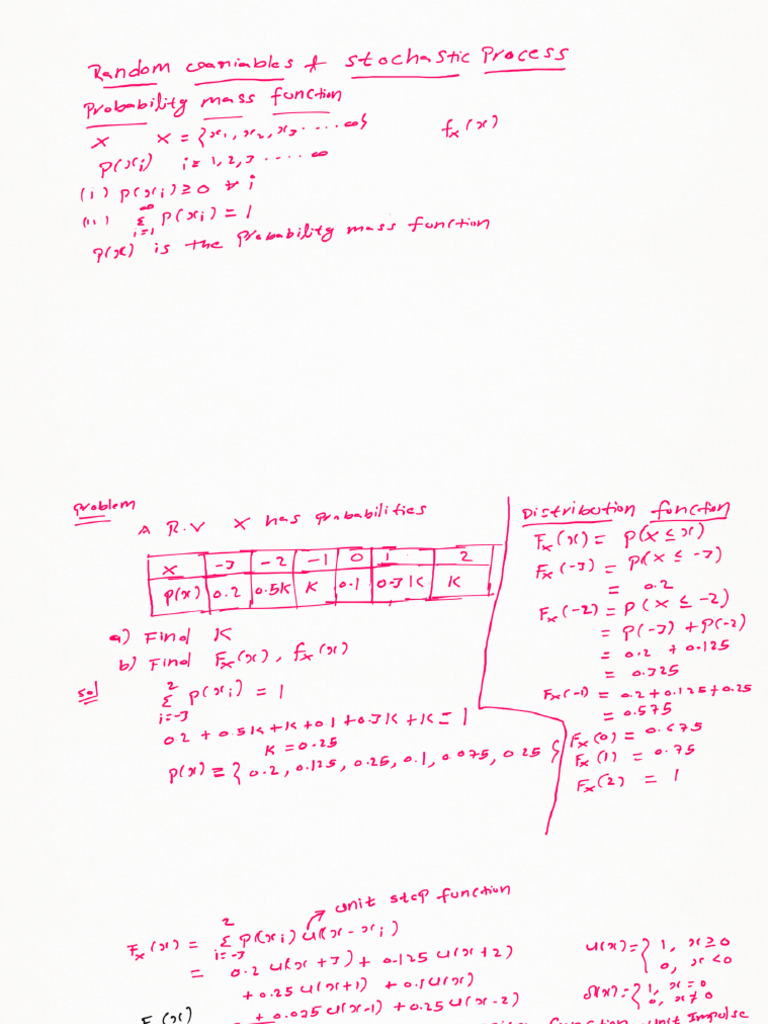 Random variables & Stochastic Process
Probability mass function
X X = {x₁, x₂, x₃ ..... ∞} fₓ(x)
P(xᵢ) i = 1, 2, 3 ..... ∞
(i) P(xᵢ) ≥ 0 ∀ i
(ii) ∞Σi=1 P(xᵢ) = 1
P(x) is the Probability mass function
Problem
A R.V X has Probabilities
X -3 -2 -1 0 1 2
P(x) 0.2 0.5K K 0.1 0.3K K
a) Find K
b) Find Fₓ(x), fₓ(x)
Sol 2Σi=-3 P(xᵢ) = 1
0.2 + 0.5K + K + 0.1 + 0.3K + K = 1
K = 0.25
P(x) = {0.2, 0.125, 0.25, 0.1, 0.075, 0.25}
Distribution function
Fₓ(x) = P(X ≤ x)
Fₓ(-3) = P(X ≤ -3)
= 0.2
Fₓ(-2) = P(X ≤ -2)
= P(-3) + P(-2)
= 0.2 + 0.125
= 0.325
Fₓ(-1) = 0.2 + 0.125 + 0.25
= 0.575
Fₓ(0) = 0.675
Fₓ(1) = 0.75
Fₓ(2) = 1
unit step function
Fₓ(x) = 2Σi=-3 P(xᵢ) u(x - xᵢ)
= 0.2 u(x + 3) + 0.125 u(x + 2)
+ 0.25 u(x + 1) + 0.1 u(x)
+ 0.075 u(x - 1) + 0.25 u(x - 2)
u(x) = { 1, x ≥ 0
0, x < 0
δ(x) = { 1, x = 0
0, x ≠ 0
Fₓ(x)
function unit Impulse